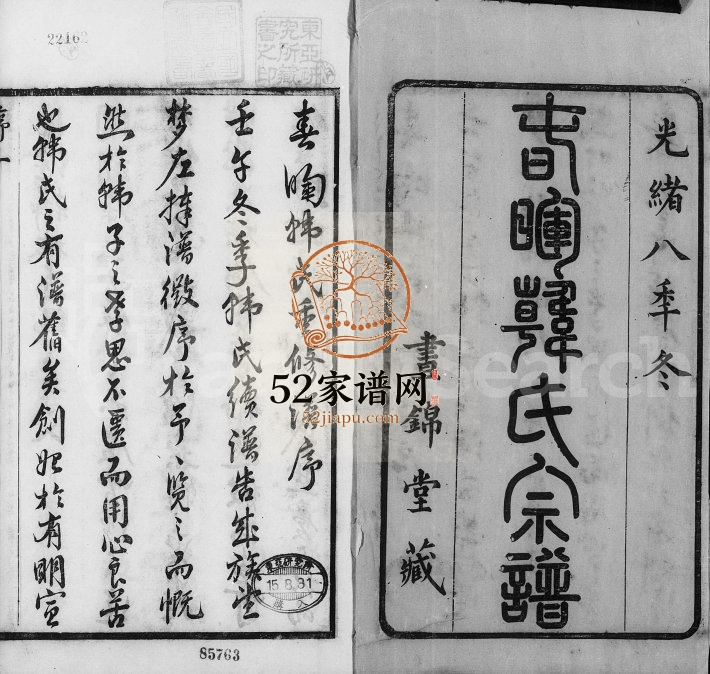 光緒八秊冬
春暉韓氏宗譜
晝錦堂藏
春暉韓氏重修譜序
壬午冬季韓氏續譜告成族
梦左捧譜徵序於予〻覽之而慨
然於韓子之孝思不匱而用心良苦
也韓氏之有譜舊矣創始於有明宣
序一
東亞研
究所藏
書之印
2216
15.8.31
購入
85763
52家谱网
52jiapu.com
Search